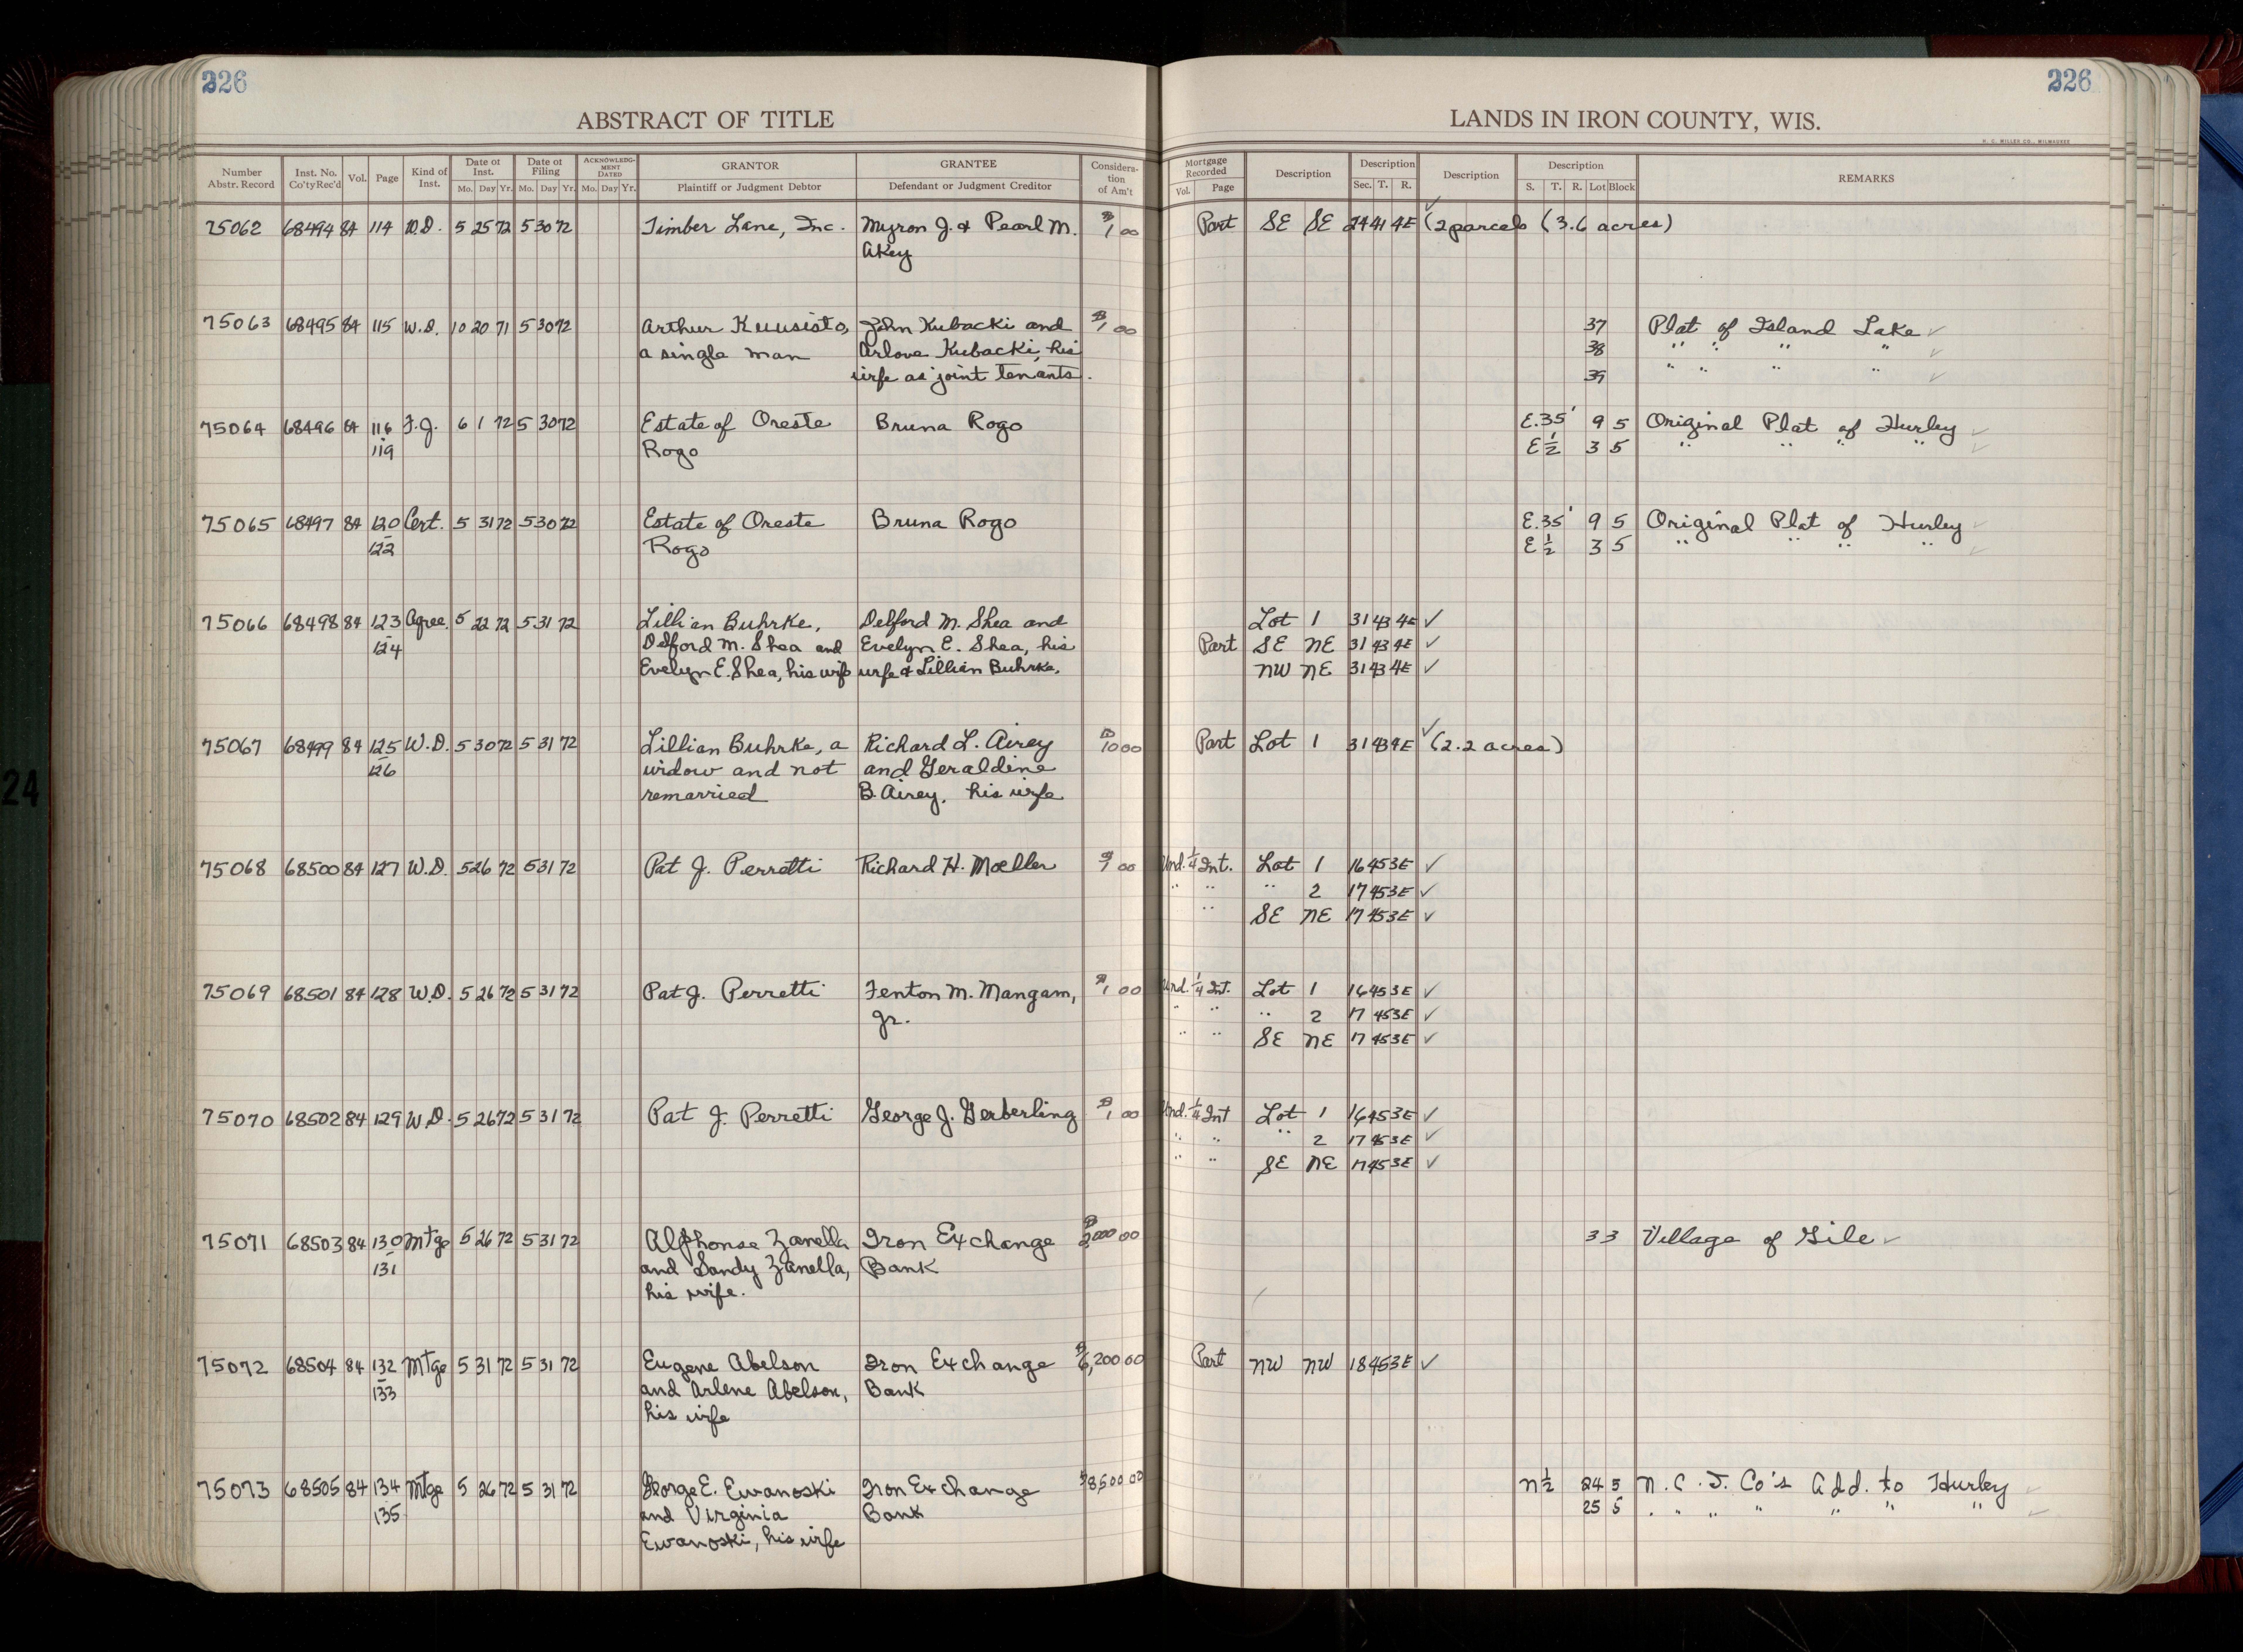 226
226
ABSTRACT OF TITLE
LANDS IN IRON COUNTY, WIS.
H. C. MILLER CO., MILWAUKEE
Number Abstr. Record Inst. No. Co'ty Rec'd Vol. Page Kind of Inst. Date of Inst. Mo. Day Yr. Date of Filing Mo. Day Yr. ACKNOWLEDGMENT DATED Mo. Day Yr. GRANTOR Plaintiff or Judgment Debtor GRANTEE Defendant or Judgment Creditor Consideration of Am't Mortgage Recorded Vol. Page Description Description Sec. T. R. Description Description S. T. R. Lot Block REMARKS
75062 68494 84 114 W.D. 5 25 72 5 30 72 Timber Lane, Inc. Myron J. & Pearl M. $1 00 Part SE SE 24 41 4E ✓ (2 parcels (3.6 acres)
Akey
75063 68495 84 115 W.D. 10 20 71 5 30 72 Arthur Kuusisto, John Kubacki and $1 00 37 Plat of Island Lake ✓
a single man Arlove Kubacki, his 38 " " " " ✓
wife as joint tenants. 39 " " " " ✓
75064 68496 84 116 F.J. 6 1 72 5 30 72 Estate of Oreste Bruna Rogo E.35' 9 5 Original Plat of Hurley ✓
119 Rogo E ½ 3 5 " " " " ✓
75065 68497 84 120 Cert. 5 31 72 5 30 72 Estate of Oreste Bruna Rogo E.35' 9 5 Original Plat of Hurley ✓
122 Rogo E ½ 3 5 " " " " ✓
75066 68498 84 123 Agree. 5 22 72 5 31 72 Lillian Buhrke, Delford M. Shea and Lot 1 31 43 4E ✓
124 Delford M. Shea and Evelyn E. Shea, his Part SE NE 31 43 4E ✓
Evelyn E. Shea, his wife wife & Lillian Buhrke. NW NE 31 43 4E ✓
75067 68499 84 125 W.D. 5 30 72 5 31 72 Lillian Buhrke, a Richard L. Airey $10 00 Part Lot 1 31 43 4E ✓ (2.2 acres)
126 widow and not and Geraldine
remarried B. Airey, his wife
75068 68500 84 127 W.D. 5 26 72 5 31 72 Pat J. Perretti Richard H. Moeller $1 00 Und. ¼ Int. Lot 1 16 45 3E ✓
" " " 2 17 45 3E ✓
" SE NE 17 45 3E ✓
75069 68501 84 128 W.D. 5 26 72 5 31 72 Pat J. Perretti Fenton M. Mangam, $1 00 Und. ¼ Int. Lot 1 16 45 3E ✓
Jr. " " " 2 17 45 3E ✓
" " SE NE 17 45 3E ✓
75070 68502 84 129 W.D. 5 26 72 5 31 72 Pat J. Perretti George J. Gerberling $1 00 Und. ¼ Int Lot 1 16 45 3E ✓
" " " 2 17 45 3E ✓
" " SE NE 17 45 3E ✓
75071 68503 84 130 Mtge 5 26 72 5 31 72 Alphonse Zanella Iron Exchange $2,000 00 33 Village of Gile ✓
131 and Sandy Zanella, Bank
his wife.
75072 68504 84 132 Mtge 5 31 72 5 31 72 Eugene Abelson Iron Exchange $6,200 00 Part NW NW 18 45 3E ✓
133 and Arlene Abelson, Bank
his wife
75073 68505 84 134 Mtge 5 26 72 5 31 72 George E. Ewanoski Iron Exchange $8,500 00 N ½ 24 5 N. C. I. Co's Add. to Hurley ✓
135 and Virginia Bank 25 5 " " " " " " " ✓
Ewanoski, his wife
24